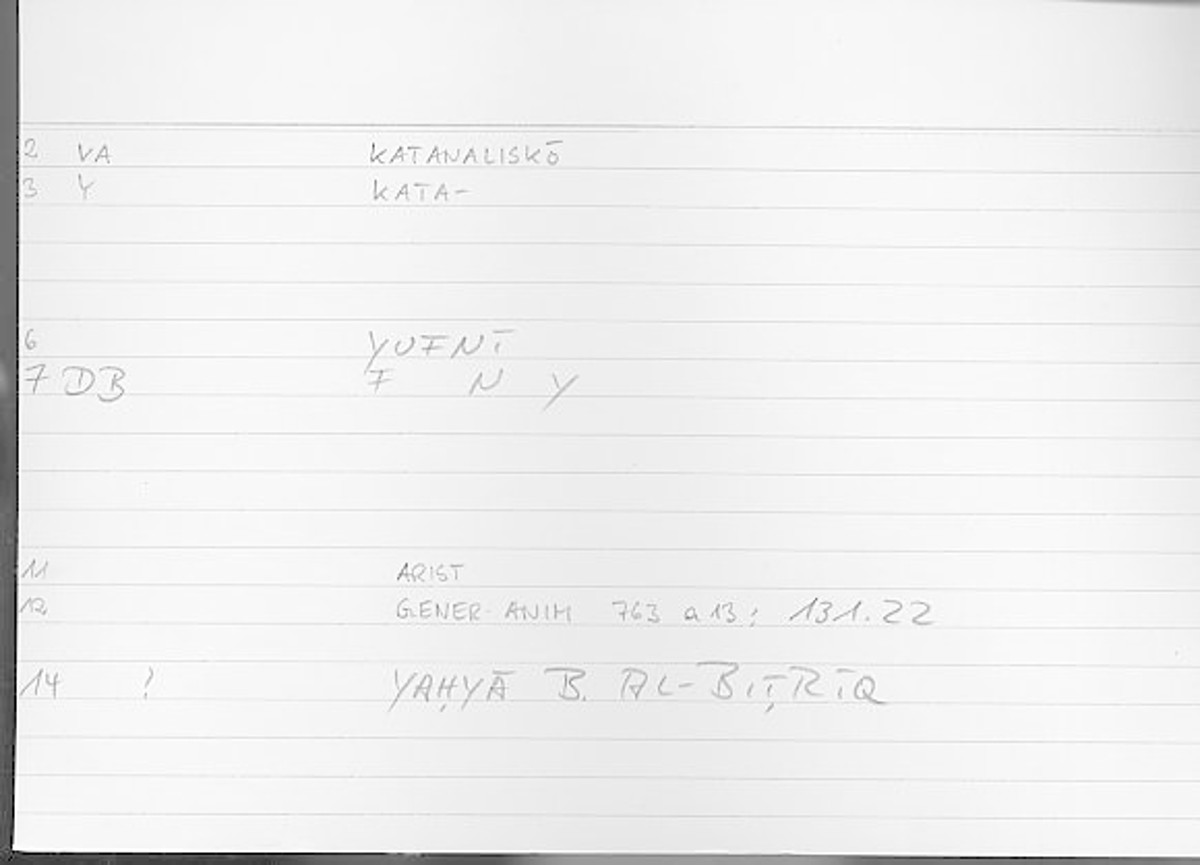 2 VA KATANALISKŌ
3 Y KATA-
6 YUFNĪ
7 DB F N Y
11 ARIST
12 GENER ANIM 763 a 13; 131.22
14 ! YAḤYĀ B. AL-BIṬRĪQ